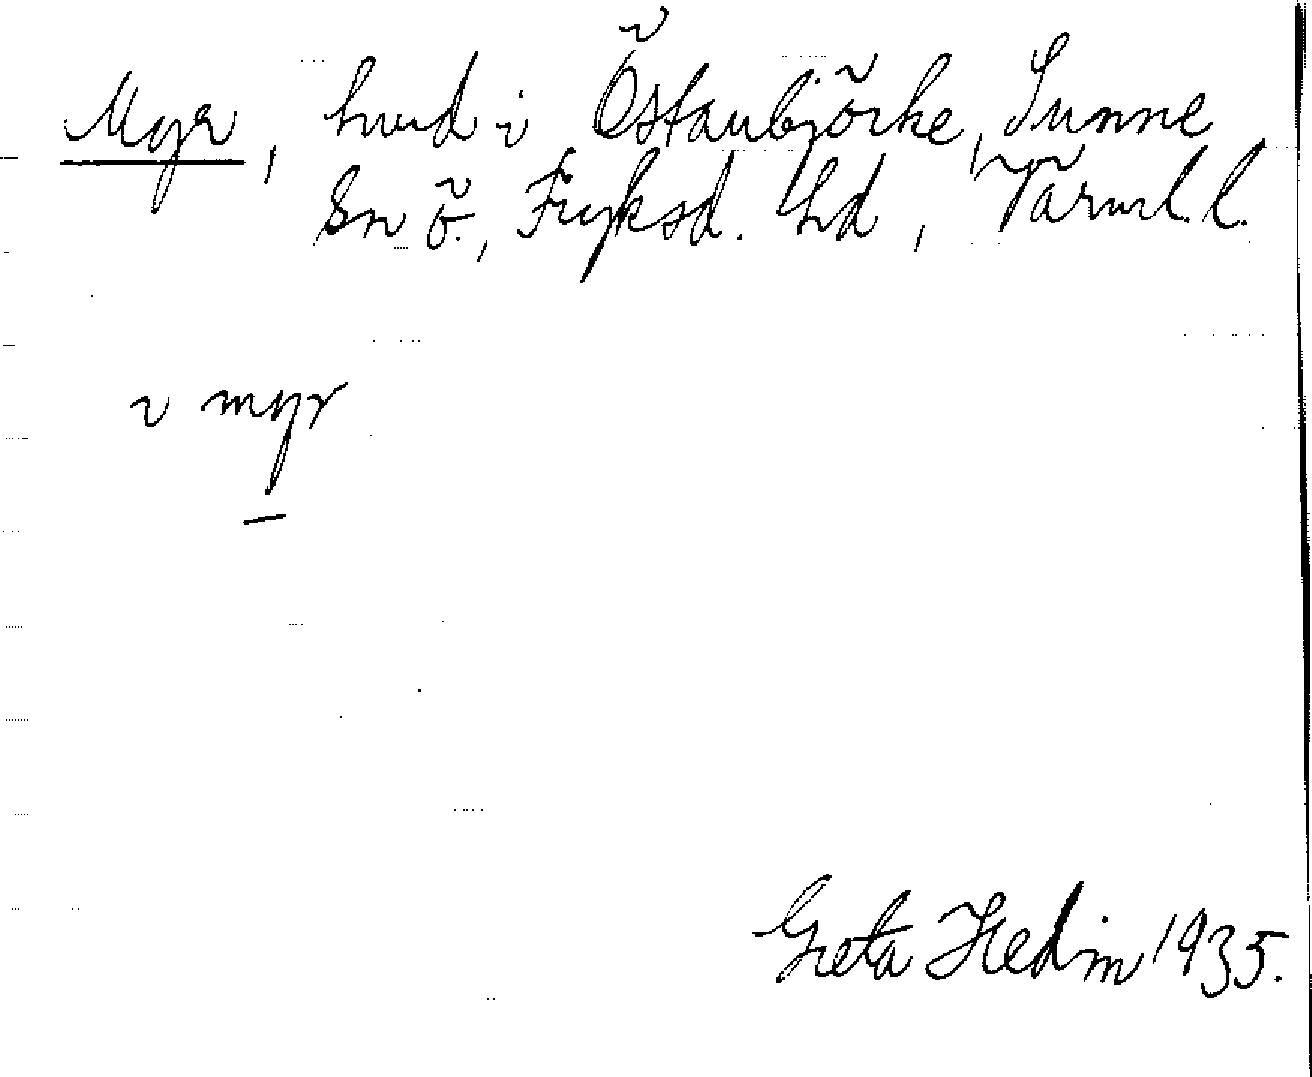 Myr, hmd i Östanbjörke, Sunne
sn ö., Fryksd. hd, Värml. l.
v myr
Greta Hedin 1935.